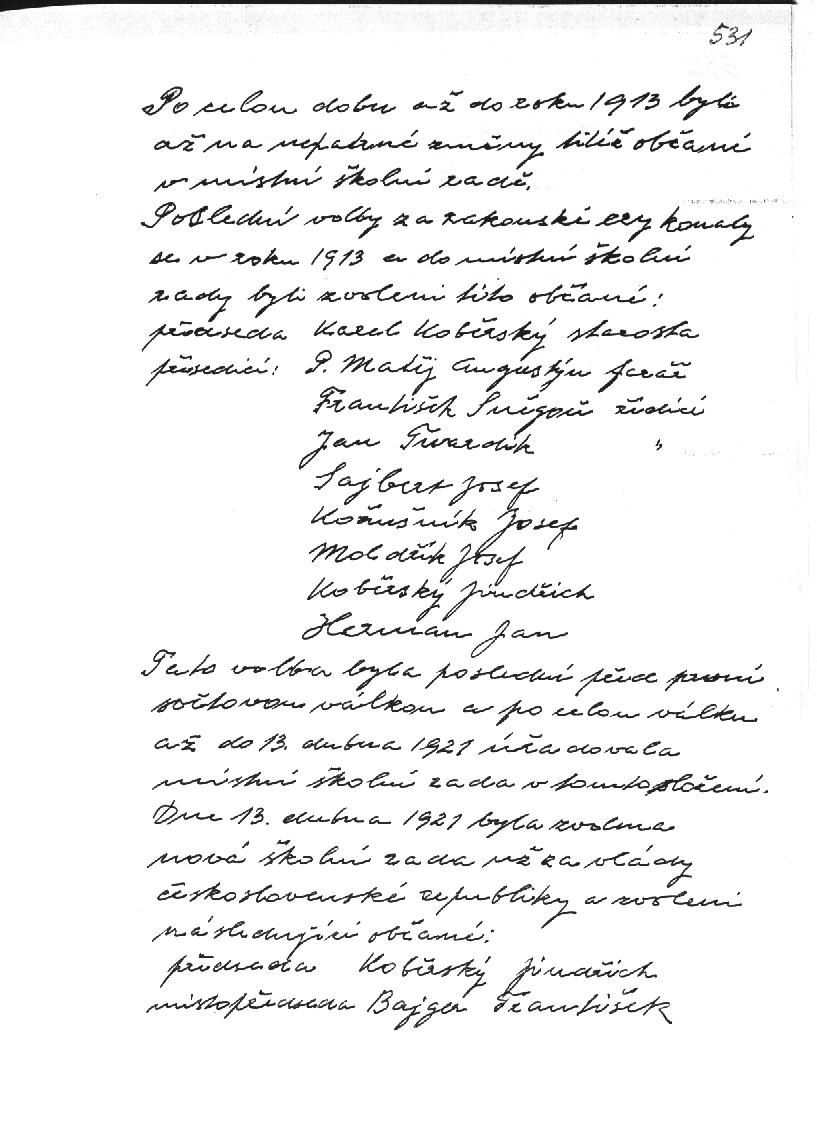 531
Po celou dobu až do roku 1913 byli
až na nepatrné změny titíž občané
v místní školní radě.
Poslední volby za rakouské éry konaly
se v roku 1913 a do místní školní
rady byli zvoleni tito občané:
předseda Karel Kobřský starosta
přísedící: P. Matěj Augustýn farář
František Sněgoň řídící
Jan Tvardík "
Sajbert Josef
Kožušník Josef
Moldřík Josef
Kobřský Jindřich
Herman Jan
Tato volba byla poslední před první
světovou válkou a po celou válku
až do 13. dubna 1921 úřadovala
místní školní rada v tomto složení.
Dne 13. dubna 1921 byla zvolena
nová školní rada už za vlády
československé republiky a zvoleni
následující občané:
předseda Kobřský Jindřich
místopředseda Bajger František